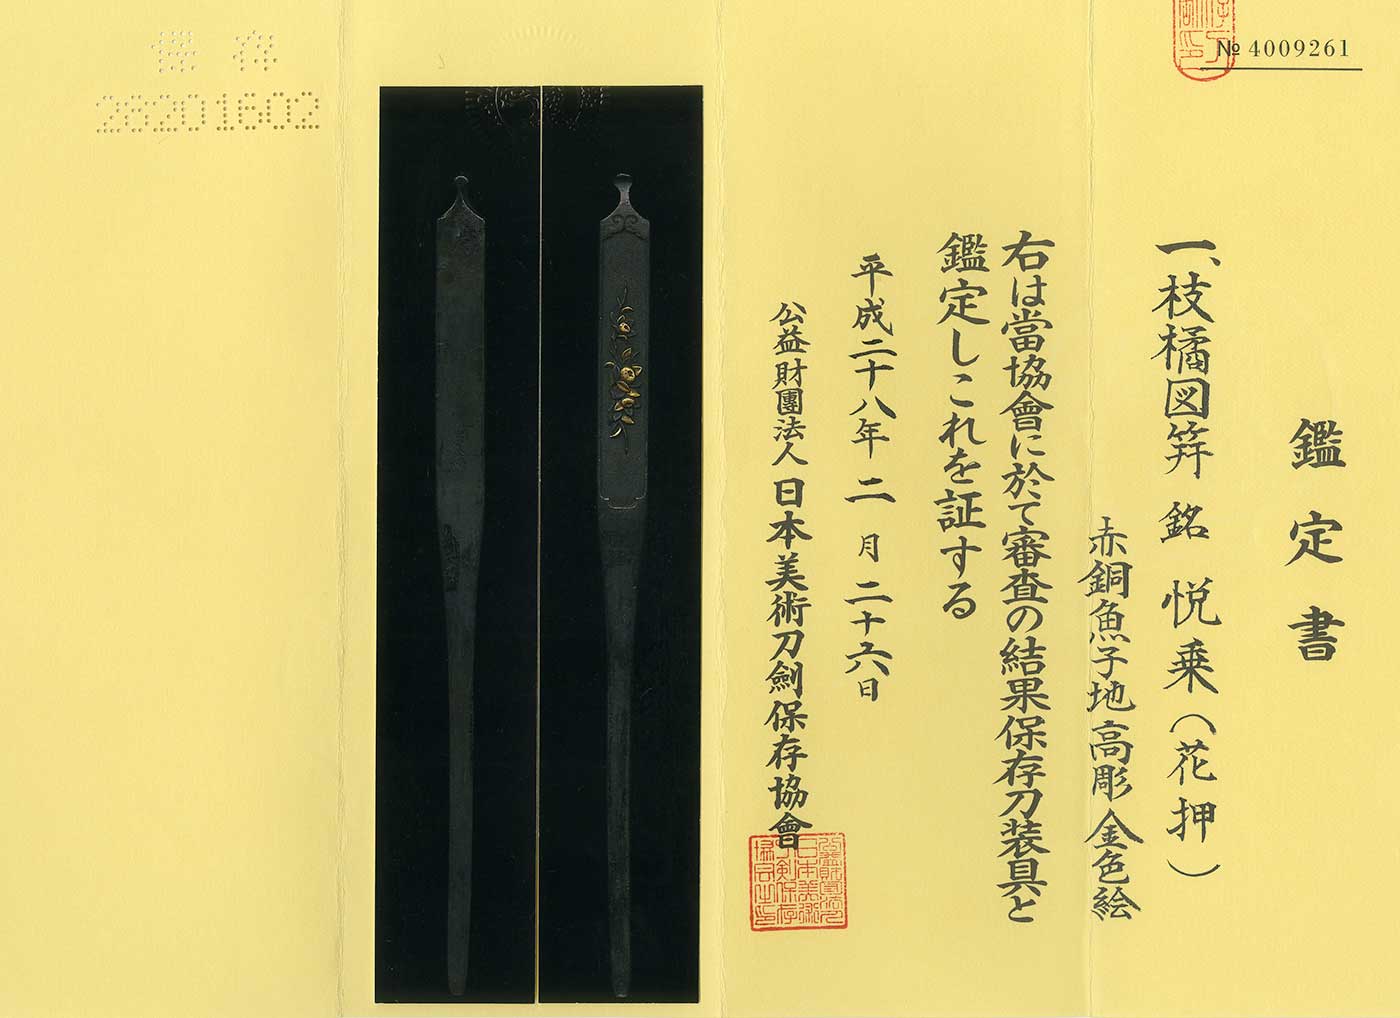 № 4009261
鑑定書
一、枝橘図笄 銘 悦乗(花押)
赤銅魚子地高彫金色絵
右は當協會に於て審査の結果保存刀装具と
鑑定しこれを証する
平成二十八年 二 月 二十六日
公益財團法人 日本美術刀劍保存協會
保存
28201602